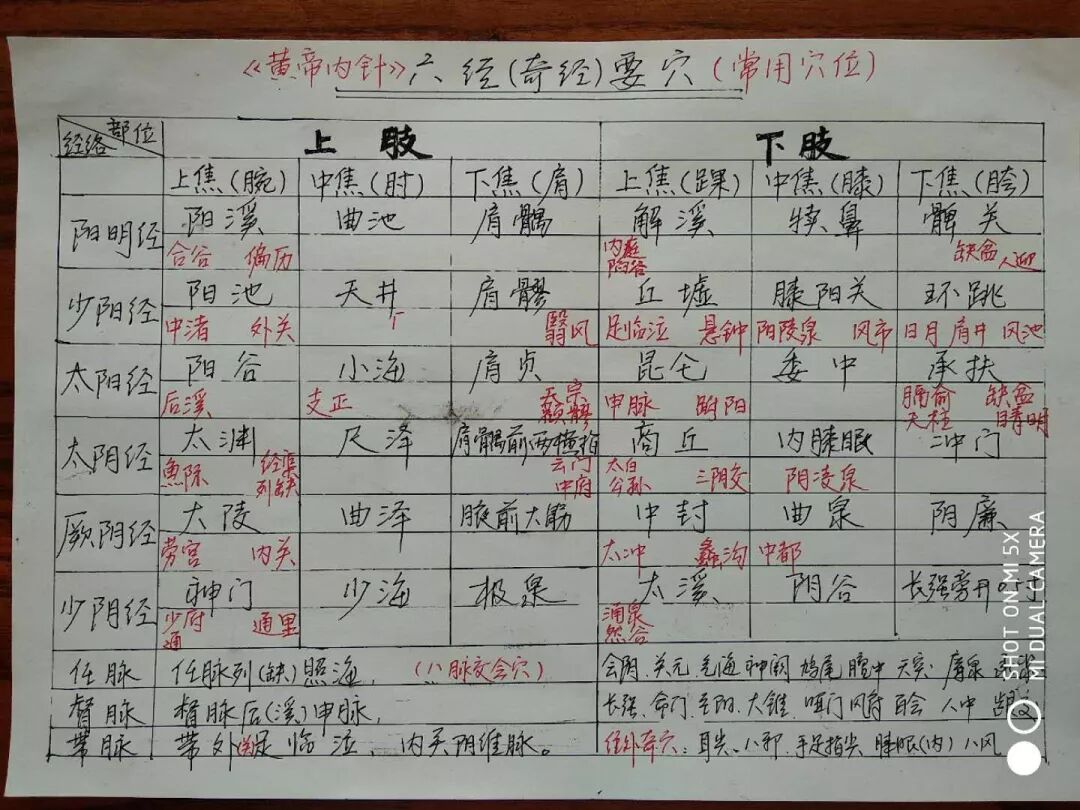 《黄帝内针》六经(奇经)要穴(常用穴位)
部位 上肢 下肢
经络
上焦(腕) 中焦(肘) 下焦(肩) 上焦(踝) 中焦(膝) 下焦(胯)
阳明经 阳溪 曲池 肩髃 解溪 犊鼻 髀关
合谷 偏历 内庭 缺盆 人迎
陷谷
少阳经 阳池 天井 肩髎 丘墟 膝阳关 环跳
中渚 外关 翳风 足临泣 悬钟 阳陵泉 风市 日月 肩井 风池
太阳经 阳谷 小海 肩贞 昆仑 委中 承扶
后溪 支正 天宗 申脉 跗阳 膈俞 缺盆
颧髎 天柱 睛明
太阴经 太渊 尺泽 肩髃前两横指 商丘 内膝眼 冲门
鱼际 经渠 云门 太白 三阴交 阴凌泉
列缺 中府 公孙
厥阴经 大陵 曲泽 腋前大筋 中封 曲泉 阴廉
劳宫 内关 太冲 蠡沟 中都
少阴经 神门 少海 极泉 太溪 阴谷 长强旁开0.5寸
少府 通里 涌泉
通 然谷
任脉 任脉列(缺)照海, (八脉交会穴) 会阴、关元、气海、神阙、鸠尾、膻中、天突、廉泉
督脉 督脉后(溪)申脉, 长强、命门、至阳、大锥、哑门、风府、百会、人中
带脉 带外(关)足临泣、内关阴维脉。 经外奇穴:耳尖、八邪、手足指尖、膝眼(内)八风
SHOT ON MI 5X
MI DUAL CAMERA